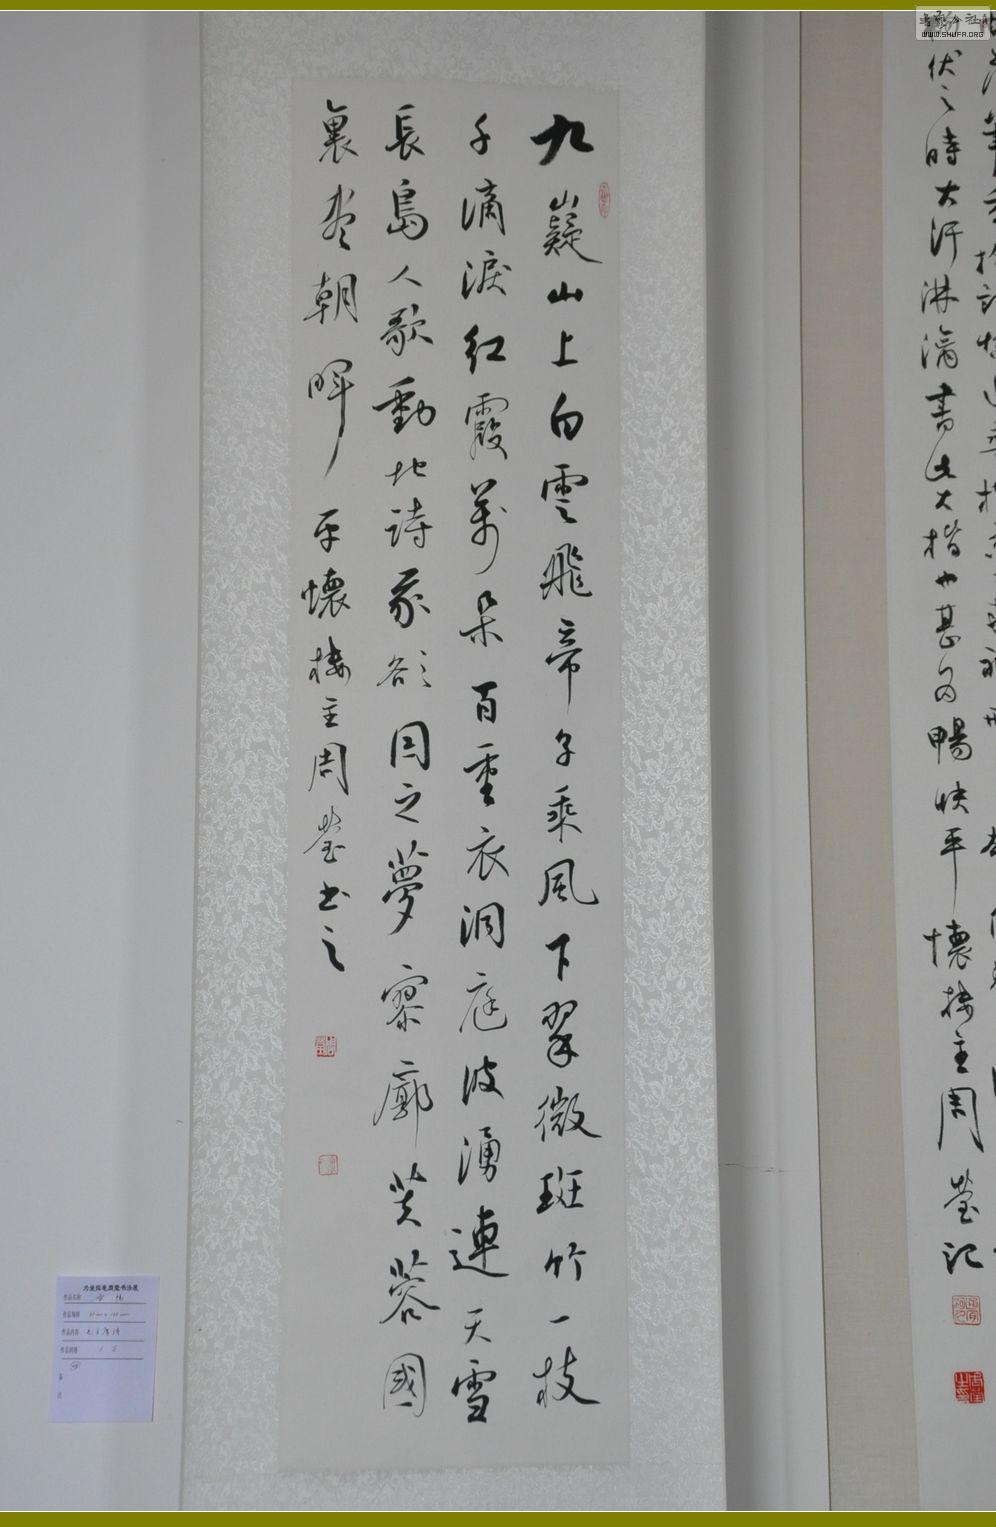 WWW.SHUFA.ORG
伏之時大汗淋漓書此大楷也甚為暢快平懷樓主周瑩記
九嶷山上白雲飛帝子乘風下翠微斑竹一枝
千滴淚紅霞萬朵百重衣洞庭波湧連天雪
長島人歌動地詩我欲因之夢寥廓芙蓉國
裏盡朝暉 平懷樓主周瑩書之
作品名称
作品规格
作品内容